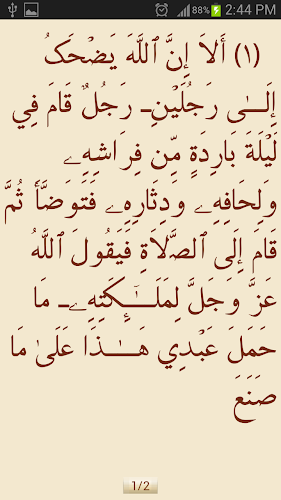 88% 2:44 PM
(١) أَلاَ إِنَّ ٱللَّهَ يَضْحَكُ
إِلَــىٰ رَجُلَيْنِـ رَجُلٌ قَامَ فِي
لَيْلَةَ بَارِدَةٍ مِّن فِرَاشِهِۦ
وَلِحَافِهِۦ وَدِثَارِهِۦ فَتَوَضَّأَ ثُمَّ
قَامَ إِلَى ٱلصَّلَاةِ فَيَقُولَ ٱللَّهُ
عَزَّ وَجَلَّ لِمَلَـٰٓئِكَتِهِۦـ مَا
حَمَلَ عَبْدِي هَـٰـذَا عَلَىٰ مَا
صَنَعَ
1/2